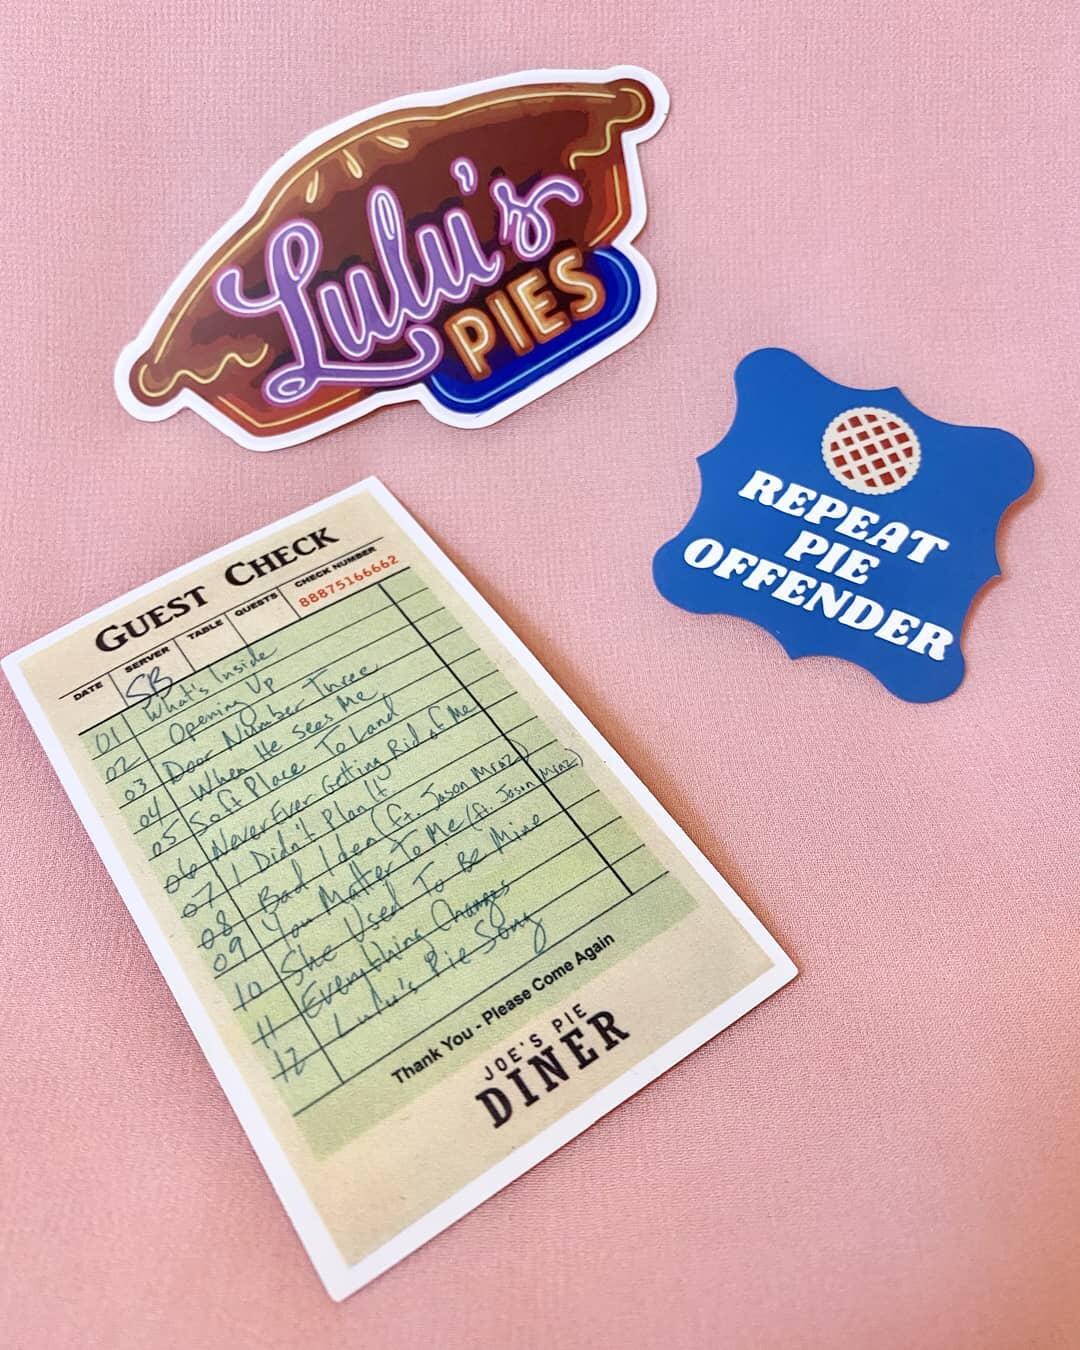 Lulu's
PIES
REPEAT
PIE
OFFENDER
GUEST CHECK
DATE SERVER TABLE GUESTS CHECK NUMBER
SB 88875166662
01 What's Inside
02 Opening Up
03 Door Number Three
04 When He Sees Me
05 Soft Place To Land
06 Never Ever Getting Rid of Me
07 I Didn't Plan It
08 Bad Idea (ft. Jason Mraz)
09 You Matter To Me (ft. Jason Mraz)
10 She Used To Be Mine
11 Everything Changes
12 Lulu's Pie Song
Thank You - Please Come Again
JOE'S PIE
DINER